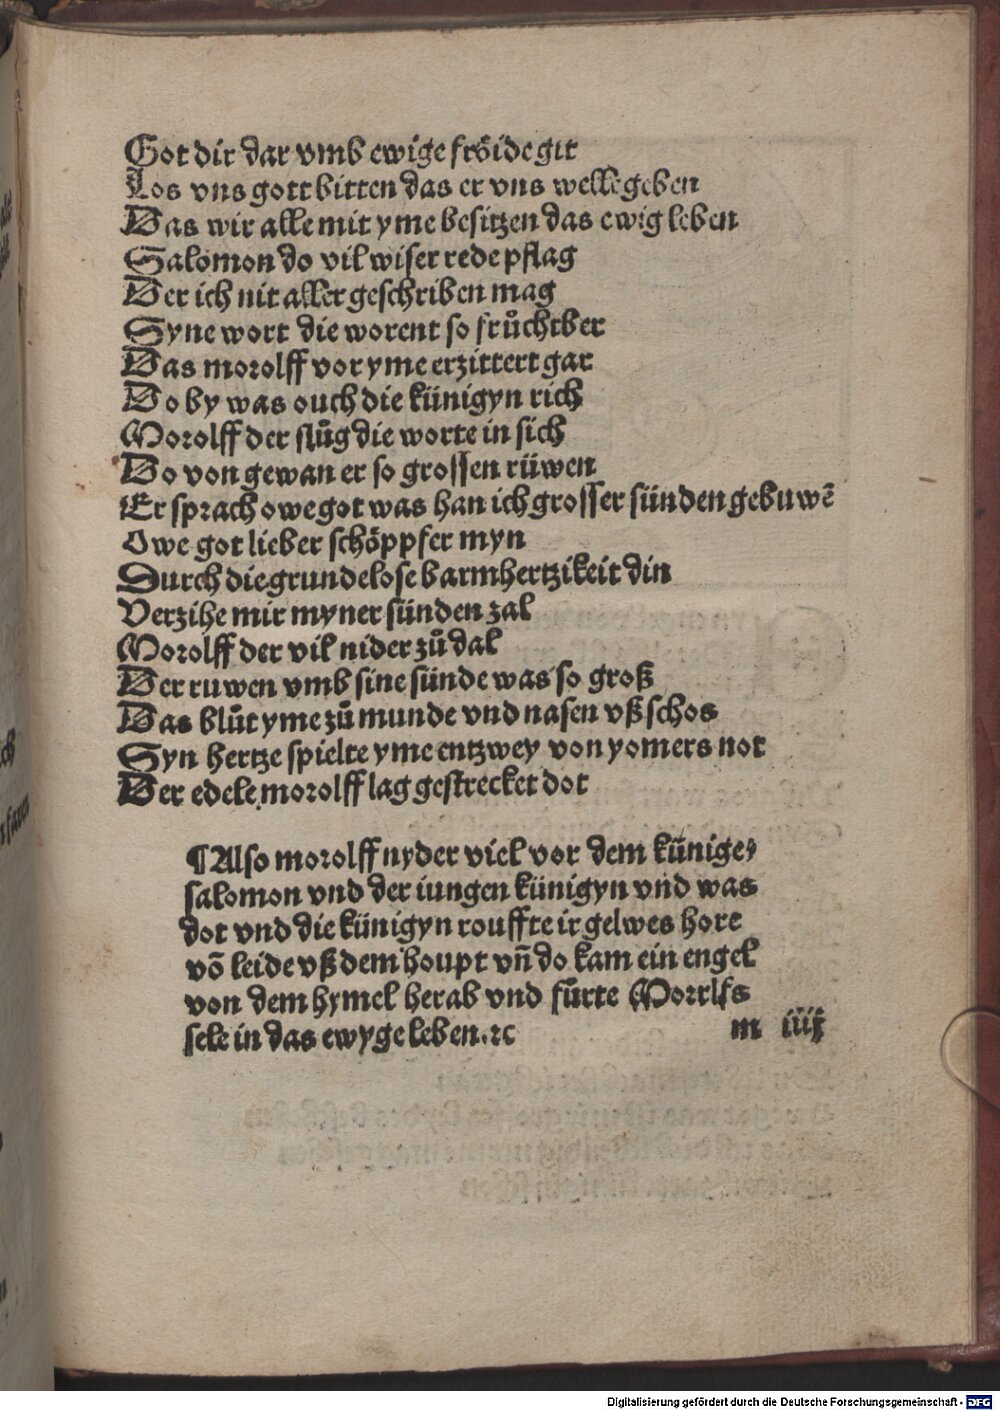 Got dir dar vmb ewige fröide git
Los vns gott bitten das er vns welle geben
Das wir alle mit yme besitzen das ewig leben
Salomon do vil wiser rede pflag
Der ich nit aller geschriben mag
Syne wort die worent so frůchtber
Das morolff vor yme erzittert gar
Do by was ouch die künigyn rich
Morolff der slůg die worte in sich
Do von gewan er so grossen rüwen
Er sprach owe got was han ich grosser sünden gebuwē
Owe got lieber schöppfer myn
Durch die grundelose barmhertzikeit din
Verzihe mir myner sünden zal
Morolff der vil nider zů dal
Der ruwen vmb sine sünde was so groß
Das blůt yme zů munde vnd nasen vß schos
Syn hertze spielte yme entzwey von yomers not
Der edele morolff lag gestrecket dot
¶ Also morolff nyder viel vor dem künige
salomon vnd der iungen künigyn vnd was
dot vnd die künigyn rouffte ir gelwes hore
vō leide vß dem houpt vn̄ do kam ein engel
von dem hymel herab vnd fůrte Morrlfs
sele in das ewyge leben.⁊c m iiij
Digitalisierung gefördert durch die Deutsche Forschungsgemeinschaft - DFG